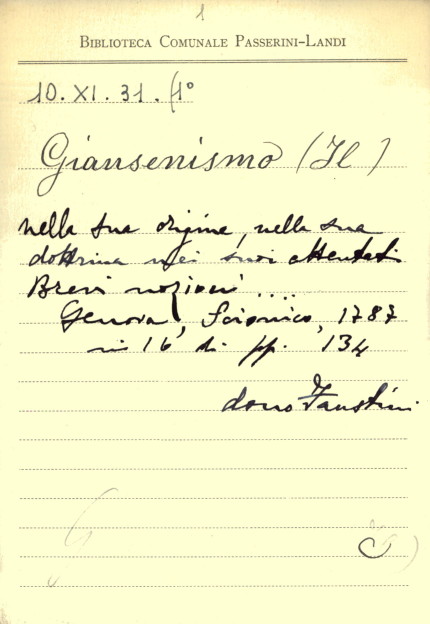 1
BIBLIOTECA COMUNALE PASSERINI-LANDI
10. XI. 31. (1°
Giansenismo (Il)
nella sua origine, nella sua
dottrina nei suoi attentati
Brevi nozioni ....
Genova, Scionico, 1787
in 16 di pp. 134
dono Faustini